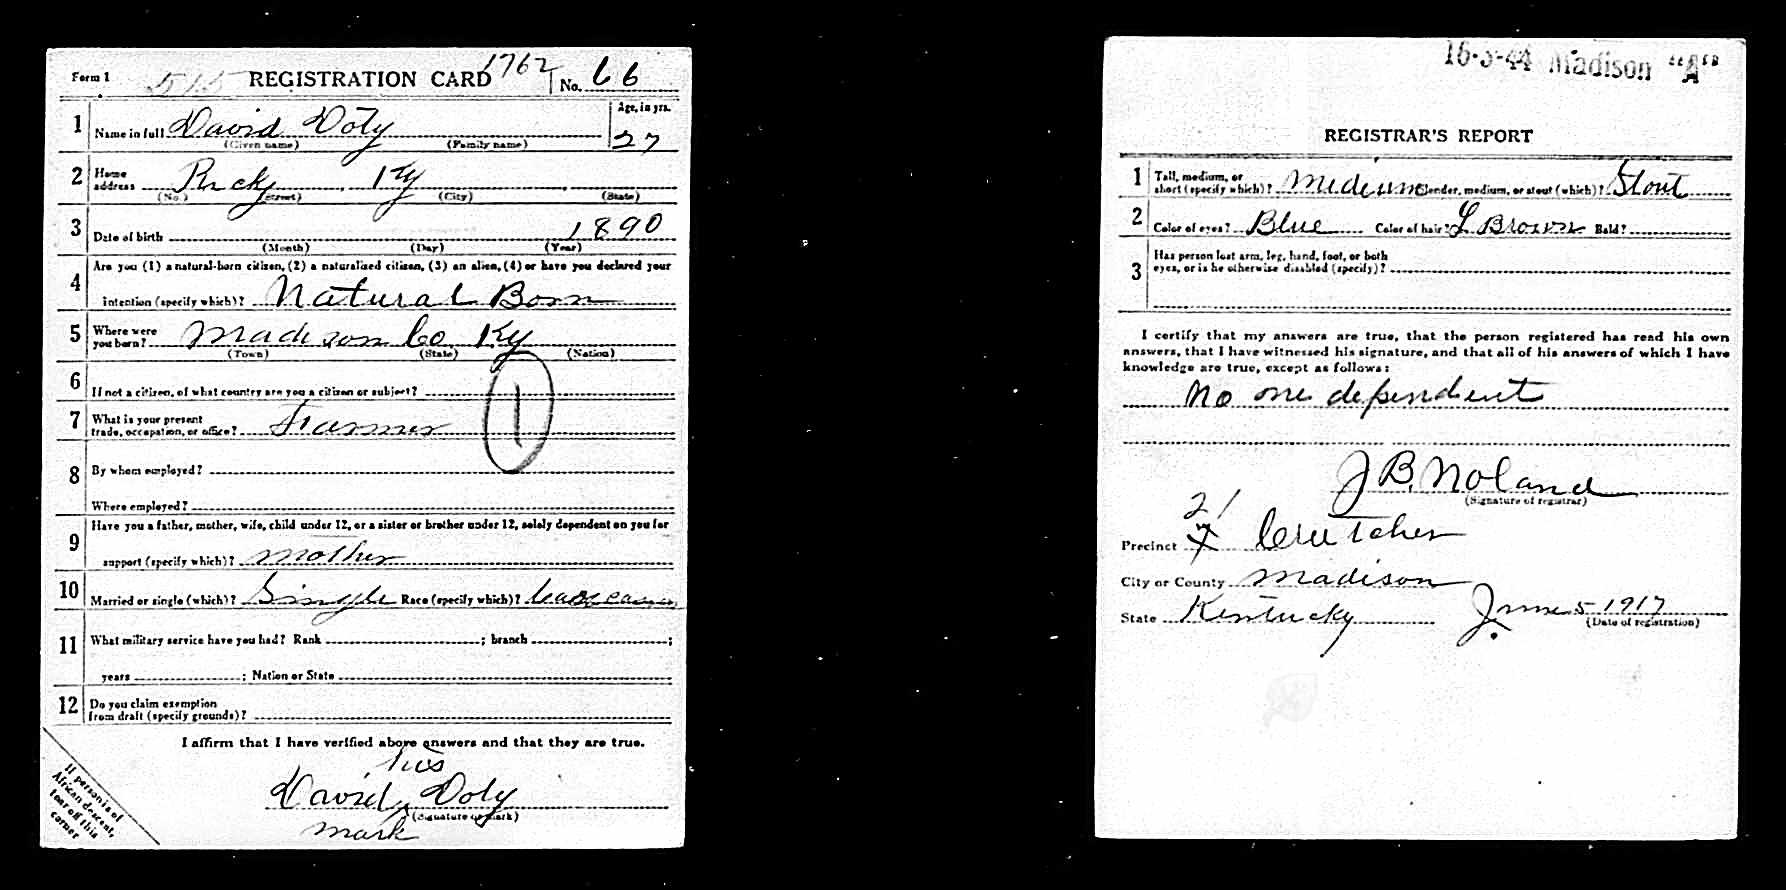 Form 1 515 REGISTRATION CARD 1762 No. 66
1 Name in full David Doty Age, in yrs.
(Given name) (Family name) 27
2 Home address Ky
(No.) (Street) (City) (State)
3 Date of birth 1890
(Month) (Day) (Year)
Are you (1) a natural-born citizen, (2) a naturalized citizen, (3) an alien, (4) or have you declared your
4 intention (specify which)? Natural Born
5 Where were you born? Madison Co Ky
(Town) (State) (Nation)
6 If not a citizen, of what country are you a citizen or subject?
1
7 What is your present trade, occupation, or office? Farmer
8 By whom employed?
Where employed?
Have you a father, mother, wife, child under 12, or a sister or brother under 12, solely dependent on you for
9 support (specify which)? Mother
10 Married or single (which)? Single Race (specify which)? Caucasian
11 What military service have you had? Rank ; branch ;
years ; Nation or State
12 Do you claim exemption
from draft (specify grounds)?
I affirm that I have verified above answers and that they are true.
his
David x Doty
(Signature or mark)
mark
If person is of
African descent,
tear off this
corner
16-3-44 Madison "A"
REGISTRAR'S REPORT
1 Tall, medium, or
short (specify which)? Medium Slender, medium, or stout (which)? Stout
2 Color of eyes? Blue Color of hair? L Brown Bald?
3 Has person lost arm, leg, hand, foot, or both
eyes, or is he otherwise disabled (specify)?
I certify that my answers are true, that the person registered has read his own
answers, that I have witnessed his signature, and that all of his answers of which I have
knowledge are true, except as follows:
No one dependent
J B. Noland
(Signature of registrar)
21
Precinct Crutcher
City or County Madison
State Kentucky June 5 1917
(Date of registration)